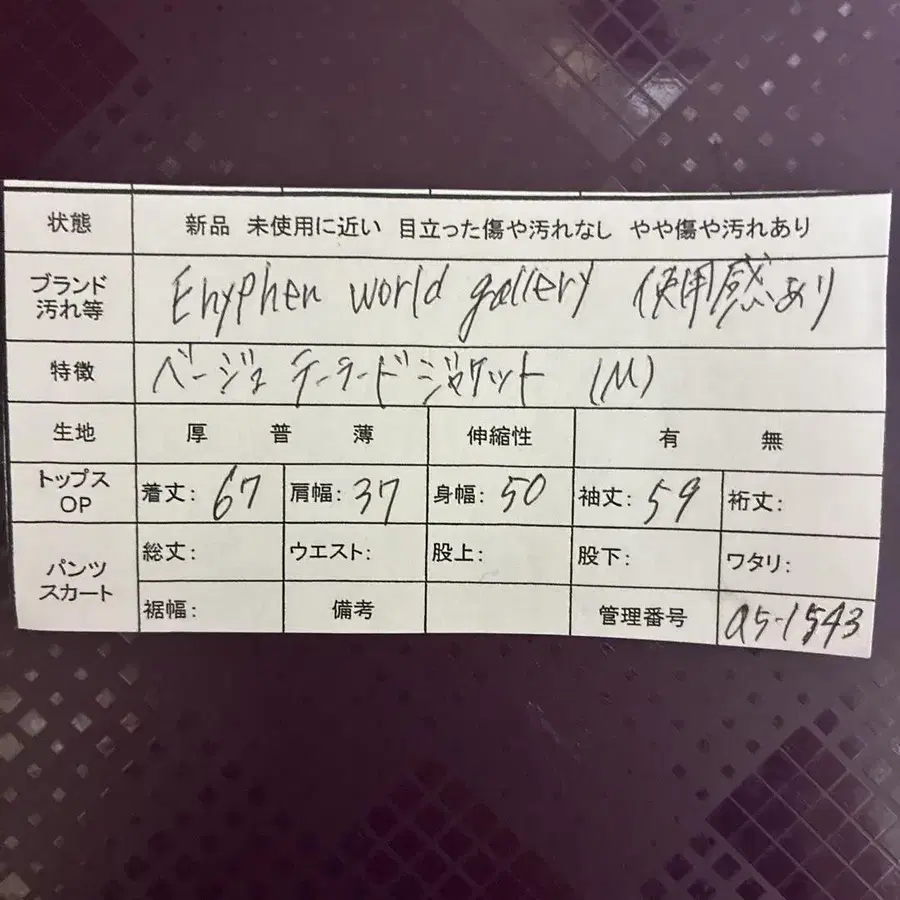 状態 新品 未使用に近い 目立った傷や汚れなし やや傷や汚れあり
ブランド 汚れ等 Ehyphen world gallery 使用感あり
特徴 ベージュ テーラードジャケット (M)
生地 厚 普 薄 伸縮性 有 無
トップス OP 着丈: 67 肩幅: 37 身幅: 50 袖丈: 59 裄丈:
パンツ スカート 総丈: ウエスト: 股上: 股下: ワタリ:
裾幅: 備考 管理番号 a5-1543